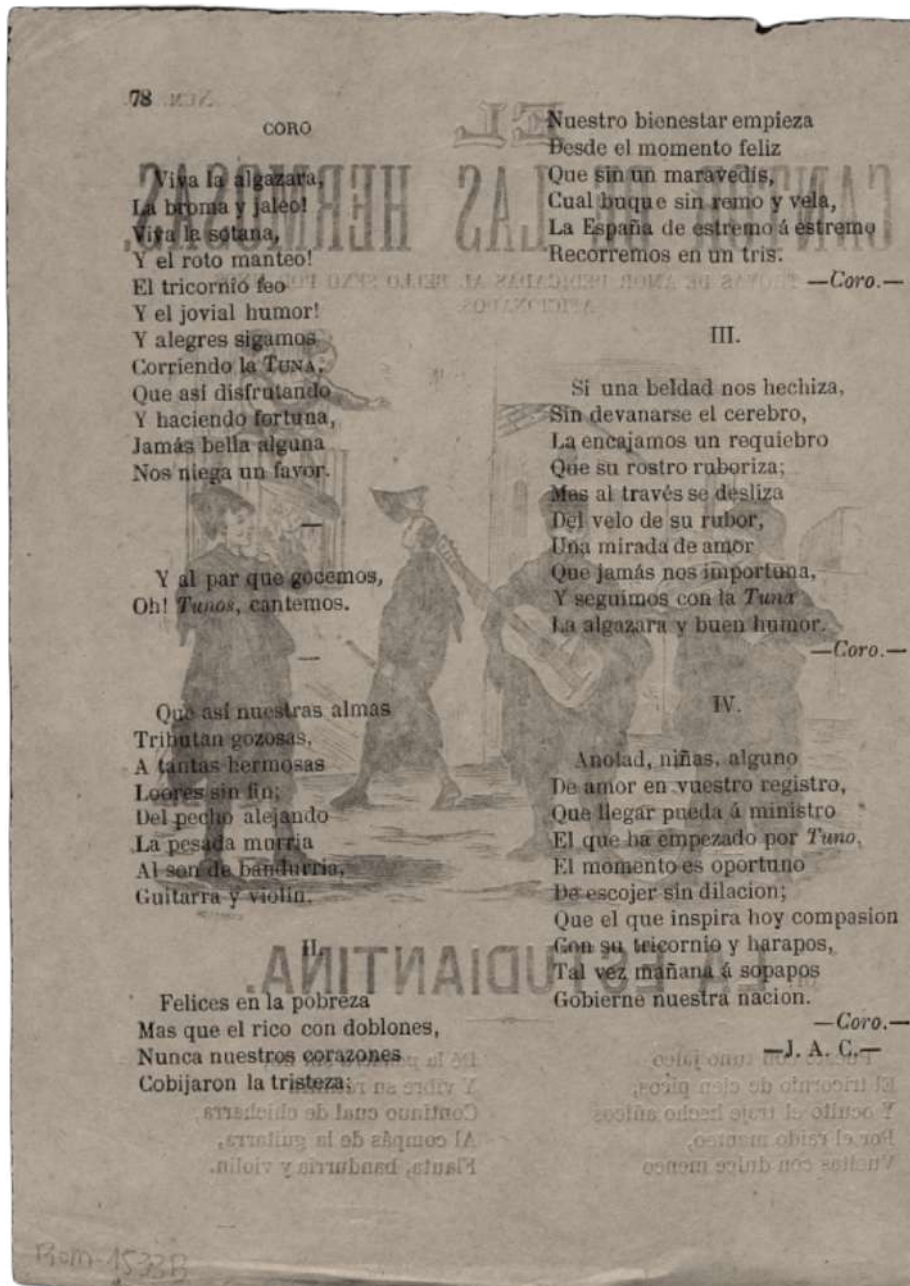 78
CORO
Viva la algazara,
La broma y jaleo!
Viva la sotana,
Y el roto manteo!
El tricornio feo
Y el jovial humor!
Y alegres sigamos
Corriendo la TUNA,
Que asi disfrutando
Y haciendo fortuna,
Jamás bella alguna
Nos niega un favor.
—
Y al par que gocemos,
Oh! Tunos, cantemos.
—
Que asi nuestras almas
Tributan gozosas,
A tantas hermosas
Loores sin fin;
Del pecho alejando
La pesada murria
Al son de bandurria,
Guitarra y violin.
II.
Felices en la pobreza
Mas que el rico con doblones,
Nunca nuestros corazones
Cobijaron la tristeza;
Nuestro bienestar empieza
Desde el momento feliz
Que sin un maravedís,
Cual buque sin remo y vela,
La España de estremo á estremo
Recorremos en un tris.
—Coro.—
III.
Si una beldad nos hechiza,
Sin devanarse el cerebro,
La encajamos un requiebro
Que su rostro ruboriza;
Mas al través se desliza
Del velo de su rubor,
Una mirada de amor
Que jamás nos importuna,
Y seguimos con la Tuna
La algazara y buen humor.
—Coro.—
IV.
Anotad, niñas, alguno
De amor en vuestro registro,
Que llegar pueda á ministro
El que ha empezado por Tuno,
El momento es oportuno
De escojer sin dilacion;
Que el que inspira hoy compasion
Con su tricornio y harapos,
Tal vez mañana á sopapos
Gobierne nuestra nacion.
—Coro.—
—J. A. C.—
Rom-1533B